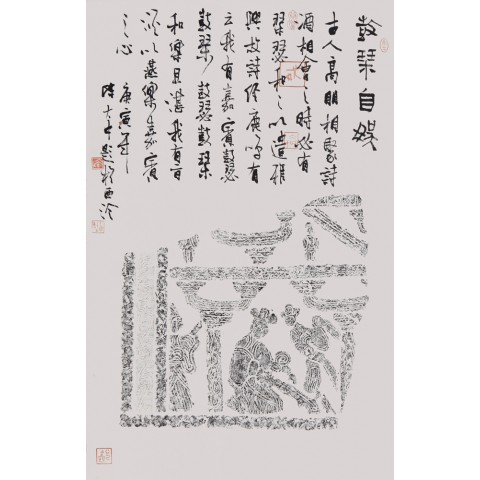 鼓琴自娛
古人高朋相聚詩
酒相會之時必有
琴瑟和之以遣雅
興故詩經鹿鳴有
云我有嘉賓鼓瑟
鼓琴鼓瑟鼓琴
和樂且湛我有旨
酒以燕樂嘉賓
之心
庚寅
題於西泠